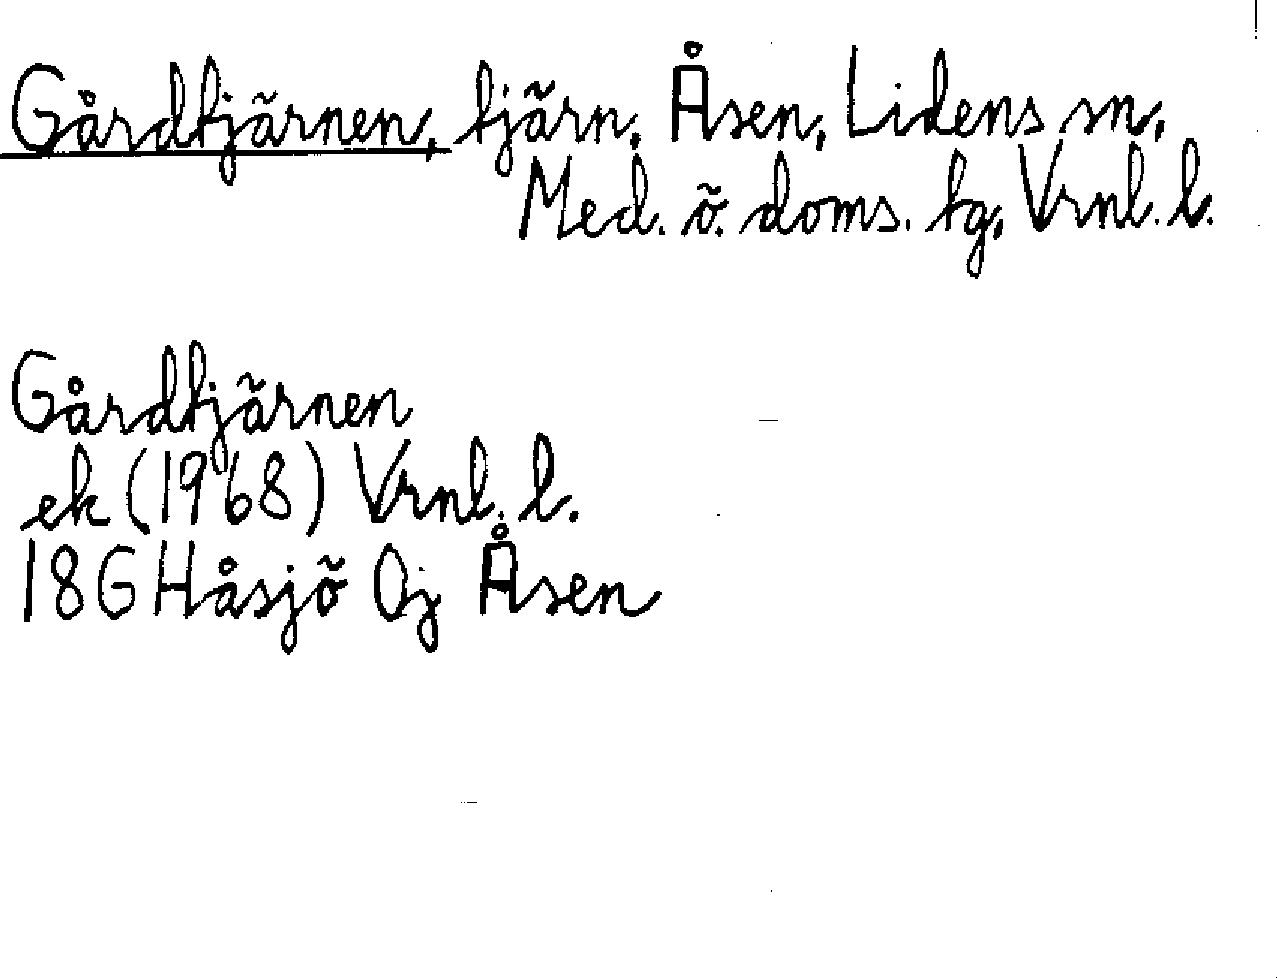 Gårdtjärnen, tjärn, Åsen, Lidens sn,
Med. ö. doms. tg, Vrnl. l.
Gårdtjärnen
ek (1968) Vrnl. l.
18G Håsjö 0j Åsen